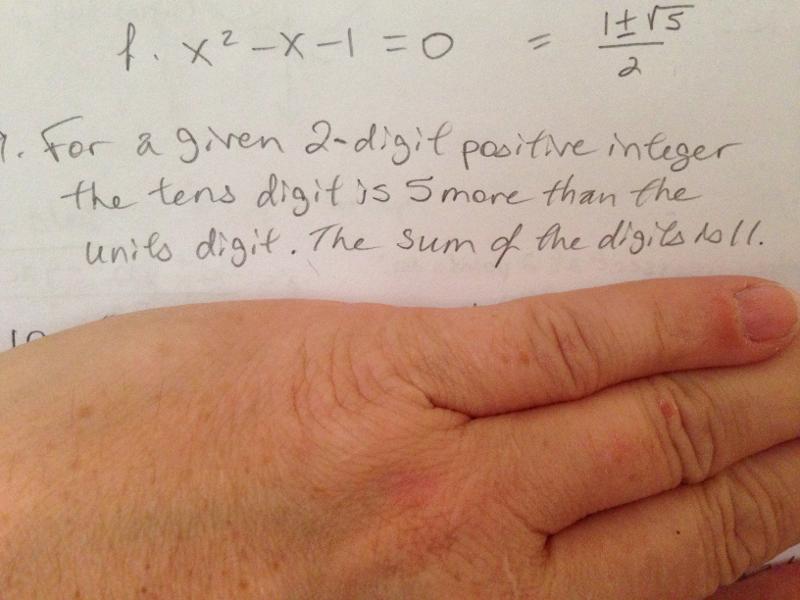 f. x² -x -1 = 0 = 1±√5/2
For a given 2-digit positive integer
the tens digit is 5 more than the
units digit. The sum of the digits is 11.